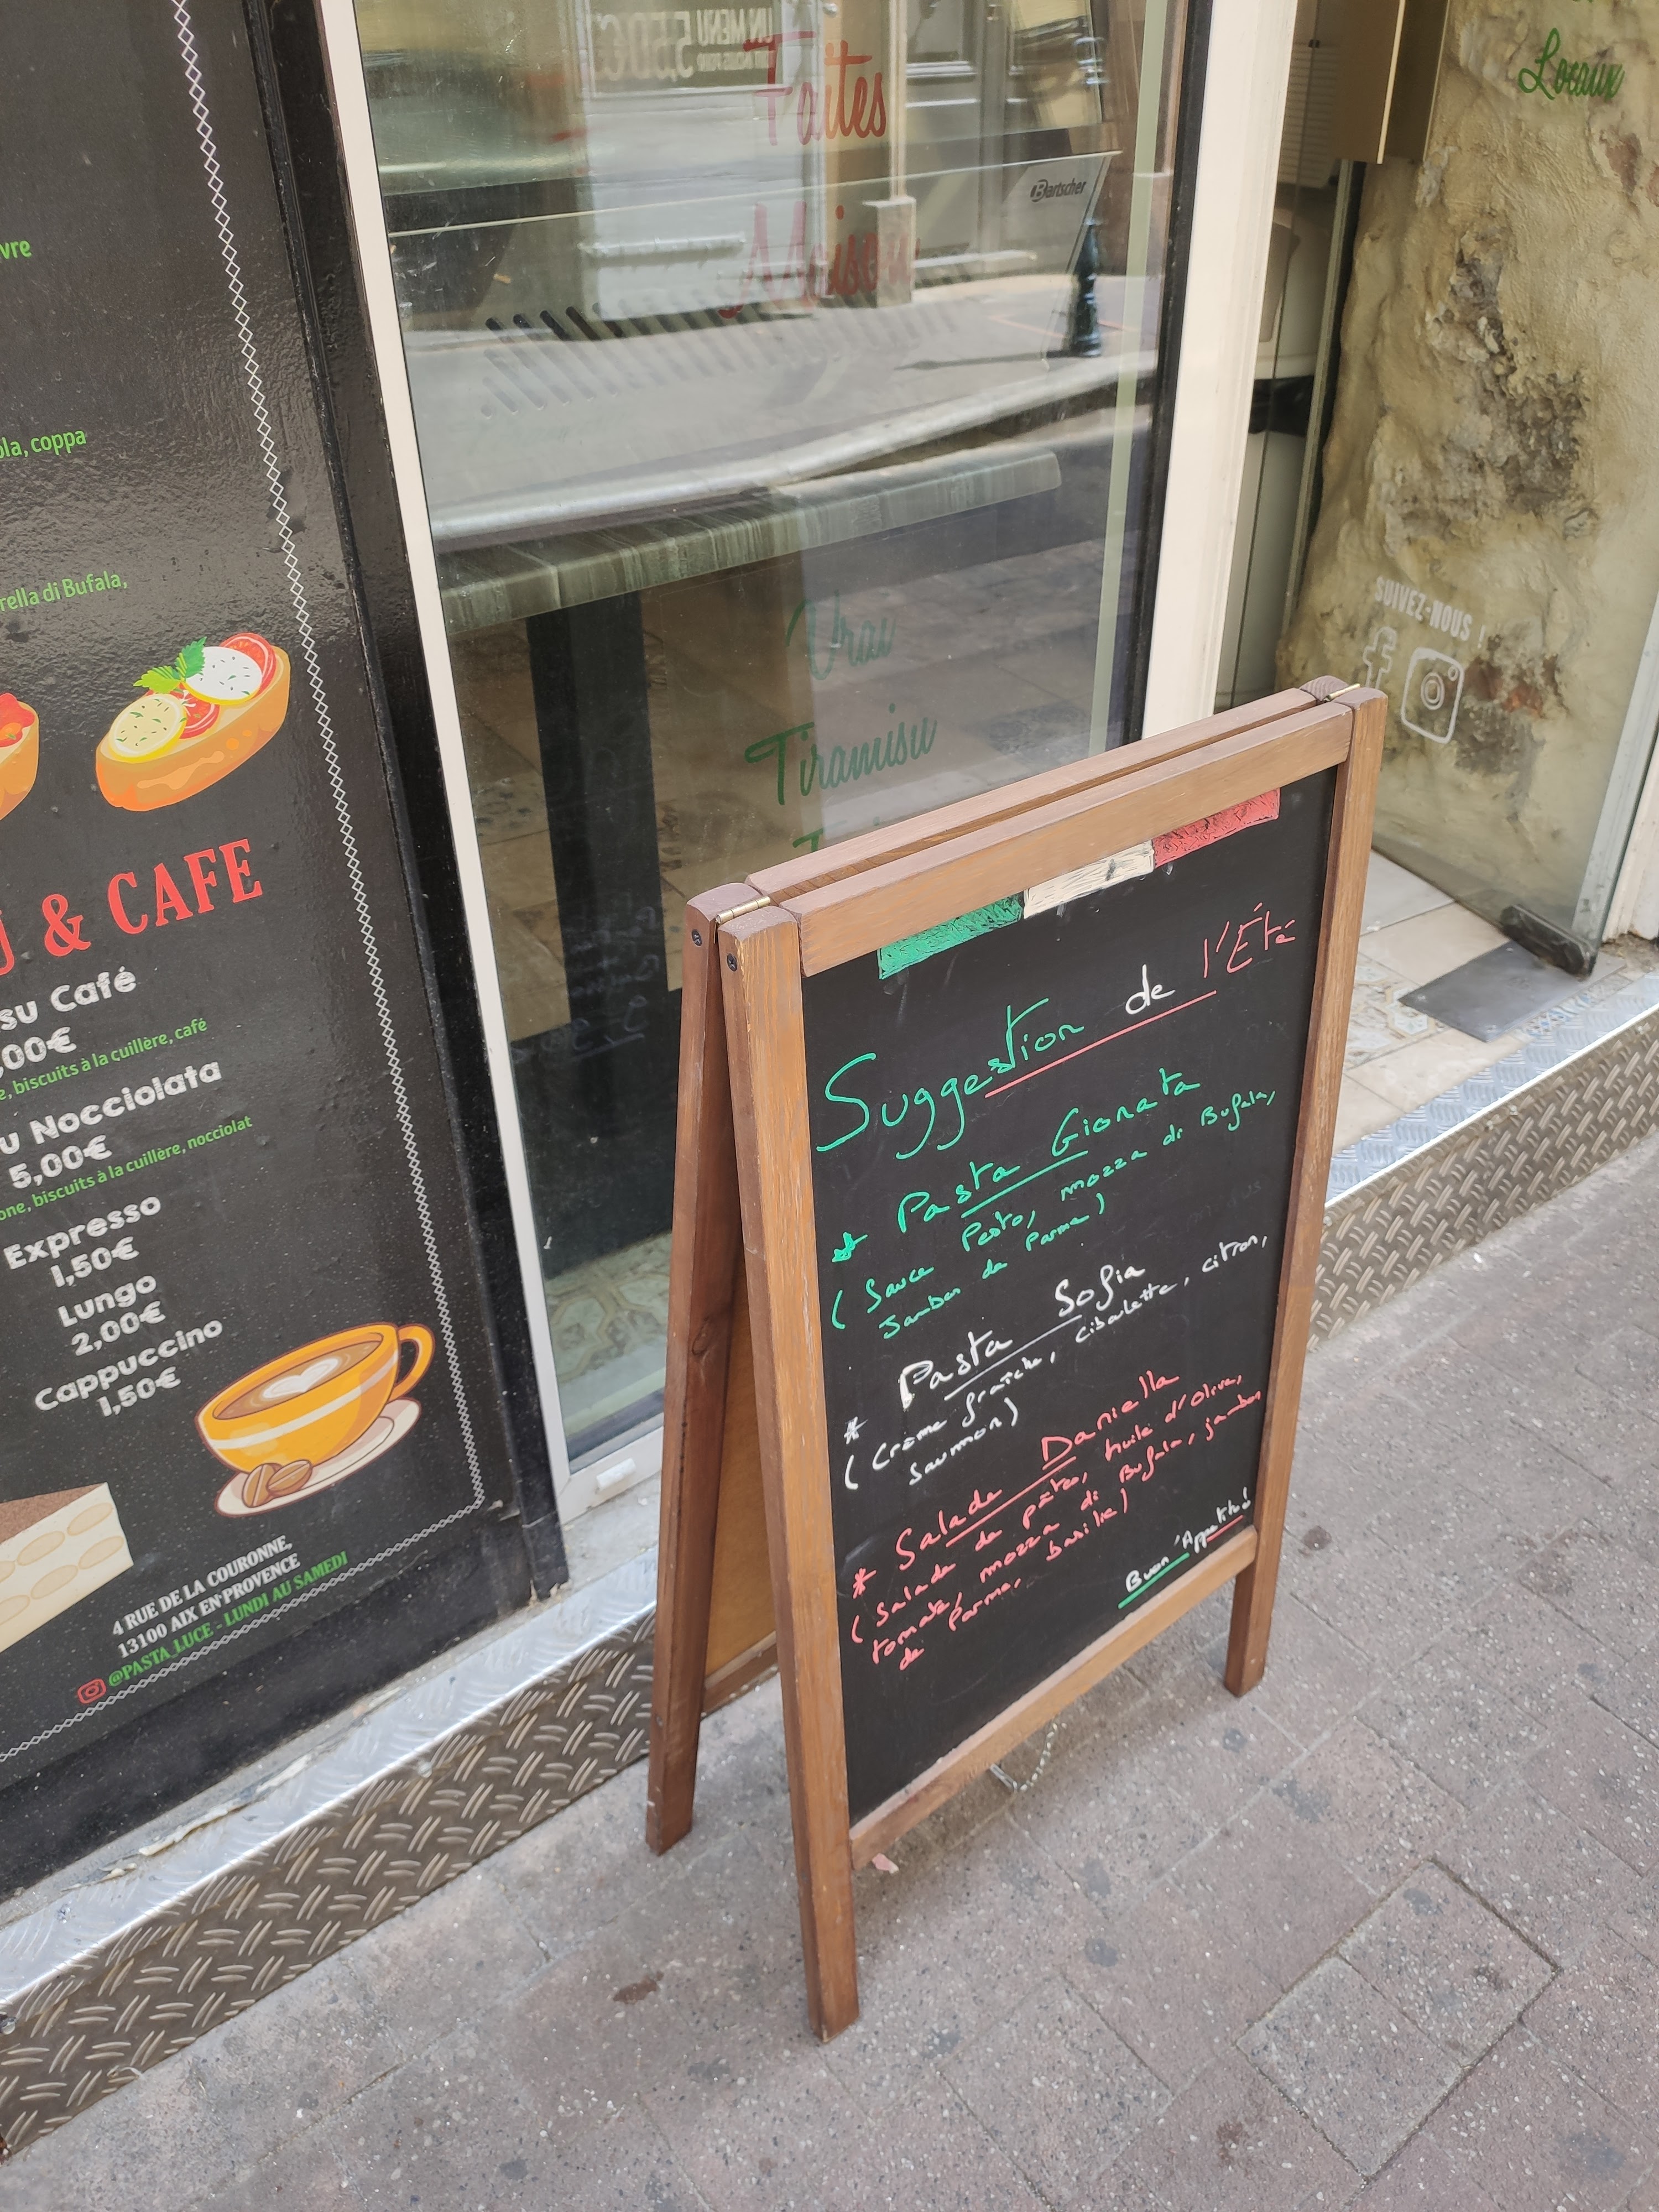 vre
ola, coppa
rella di Bufala,
& CAFE
su Café
,00€
e, biscuits à la cuillère, café
u Nocciolata
5,00€
one, biscuits à la cuillère, nocciolat
Expresso
1,50€
Lungo
2,00€
Cappuccino
1,50€
4 RUE DE LA COURONNE,
13100 AIX EN PROVENCE
@PASTA_LUCE - LUNDI AU SAMEDI
UN MENU
5.50€
Faites
Maison
Bartscher
Vrai
Tiramisu
Locaux
SUIVEZ-NOUS !
Suggestion de l'Été
* Pasta Gionata
(Sauce Pesto, mozza di Bufala,
Jambon de Parme)
* Pasta Sofia
(Crème fraîche, ciboulette, citron,
saumon)
* Salade Daniella
(Salade de pâtes, Huile d'olive,
tomate, mozza di Bufala, jambon
de Parme, basilic)
Buon 'Appetito!